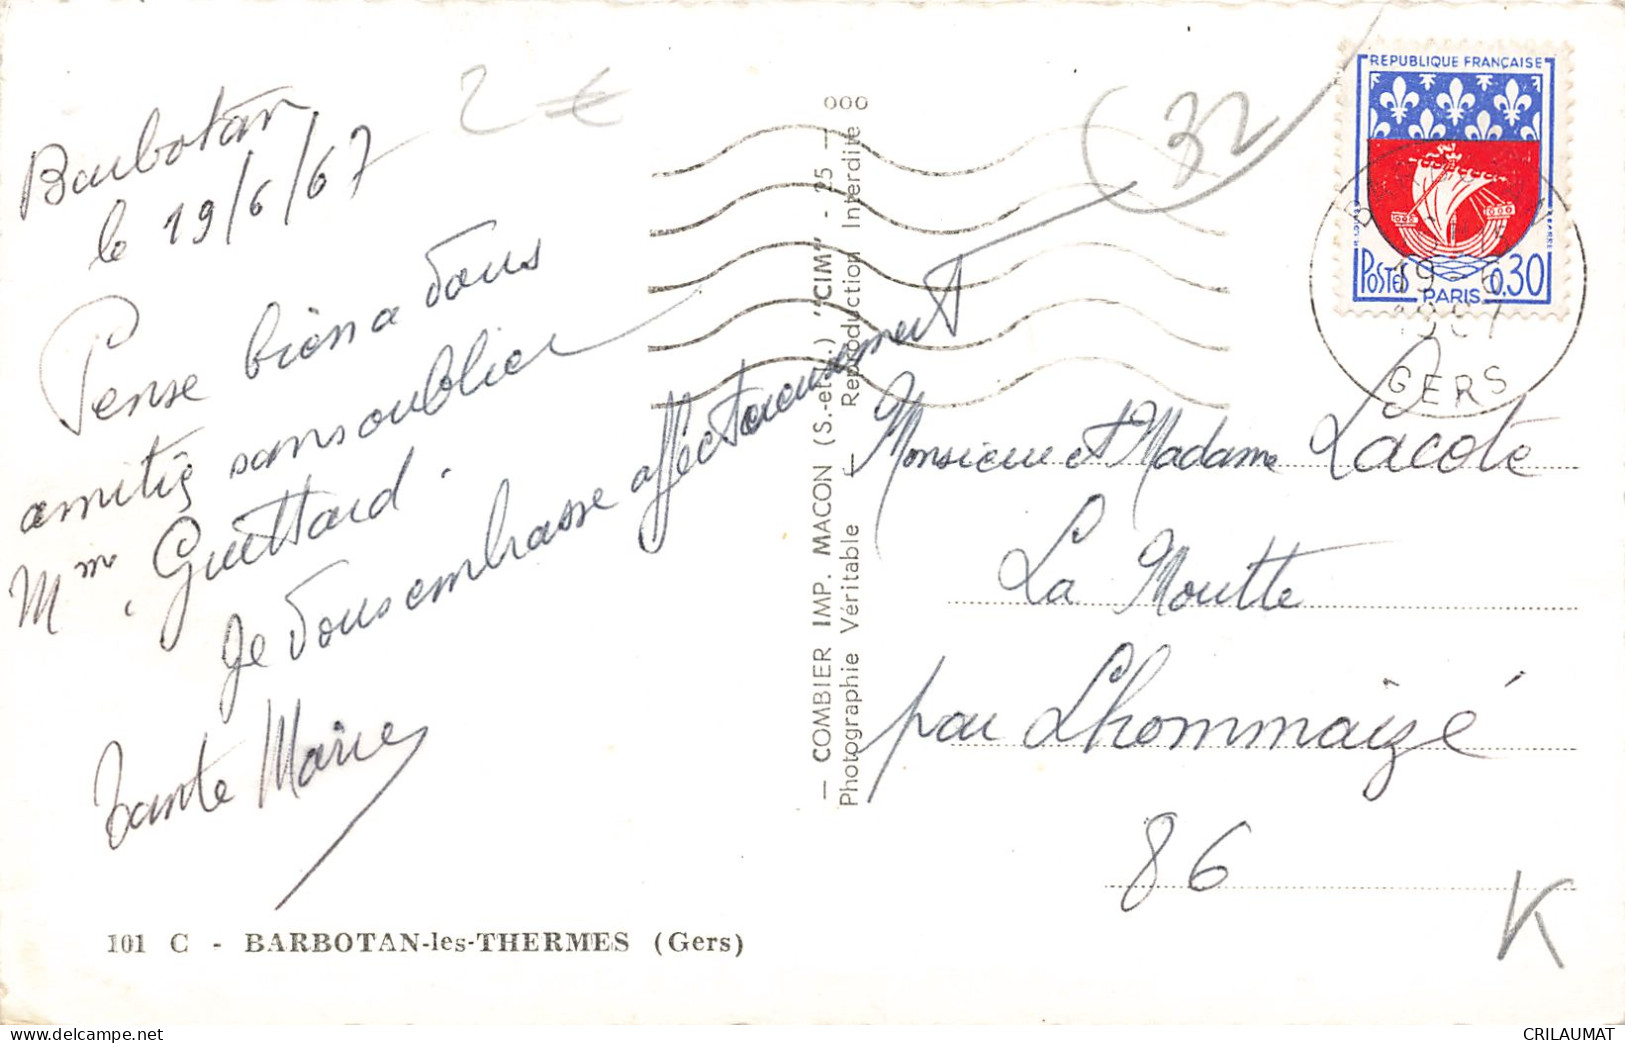 Barbotan
le 19/6/67
2 €
Pense bien a vous
amitiés sans oublier
Mme Guittard.
Je vous embrasse affectueusement
Tante Marie
101 C - BARBOTAN-les-THERMES (Gers)
— COMBIER IMP. MACON (S.-et-L.) "CIM" - 25 — 000
Photographie Véritable — Reproduction Interdite
32
REPUBLIQUE FRANÇAISE
POSTES 0,30
PARIS
19 - 6
1967
GERS
Monsieur et Madame Lacote
La Moutte
par Lhommaizé
86
K
delcampe.net
CRILAUMAT